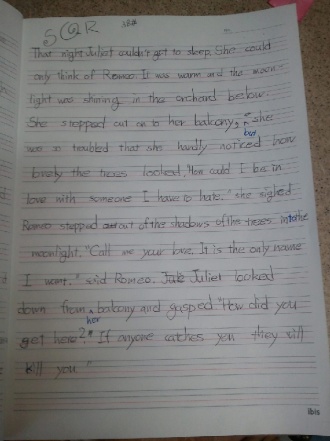 SQR
That night Juliet couldn't get to sleep. She could
only think of Romeo. It was warm and the moon-
light was shining in the orchard below.
She stepped out on to her balcony, she
but
was so troubled that she hardly noticed how
lovely the trees looked, "How could I be in
love with someone I have to hate." she sighed
Romeo stepped out of the shadows of the trees into the
moonlight. "Call me your love. It is the only name
I want." said Romeo. Juliet looked
down from balcony and gasped "How did you
her
get here? If anyone catches you they will
kill you."
ibis